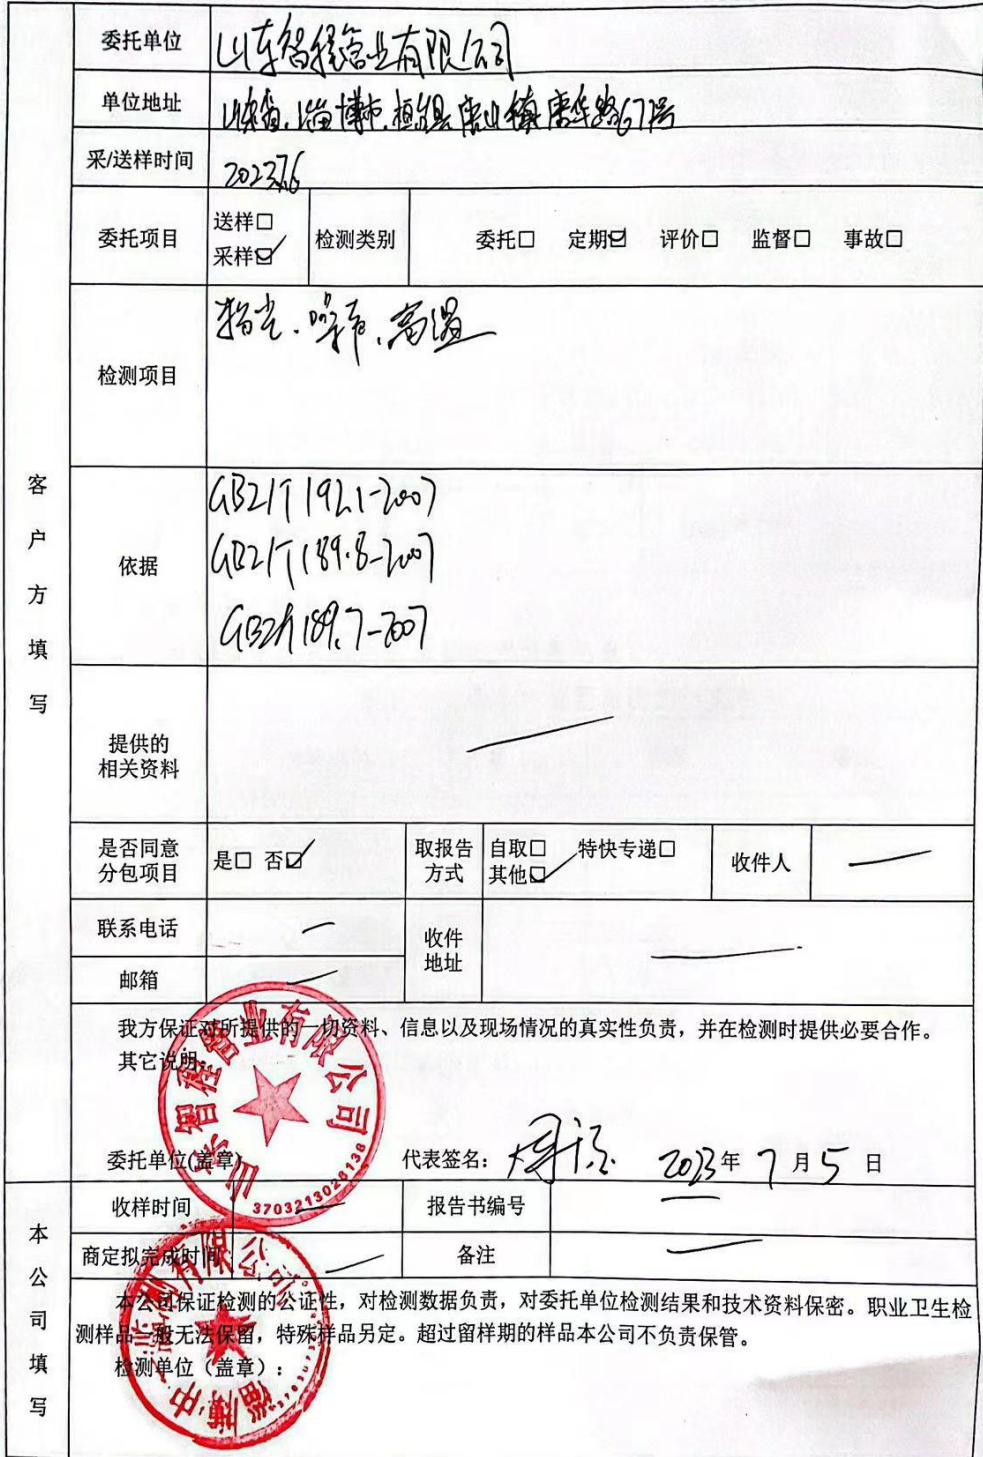 委托单位 山东智程管业有限公司
单位地址 山东省淄博市桓台县唐山镇唐华路67号
采/送样时间 2023.7.6
委托项目 送样□ 采样☑ 检测类别 委托□ 定期☑ 评价□ 监督□ 事故□
检测项目 粉尘、噪声、高温
客户方填写
依据 GBZ/T 192.1-2007
GBZ/T 189.8-2007
GBZ/T 189.7-2007
提供的
相关资料
是否同意
分包项目 是□ 否☑ 取报告
方式 自取□ 特快专递□
其他☑ 收件人
联系电话 收件
地址
邮箱
我方保证对所提供的一切资料、信息以及现场情况的真实性负责，并在检测时提供必要合作。
其它说明：
山东智程管业有限公司
3703213026138
委托单位(盖章) 代表签名： 2023年 7月 5日
收样时间 报告书编号
商定拟完成时间 备注
本公司填写
本公司保证检测的公证性，对检测数据负责，对委托单位检测结果和技术资料保密。职业卫生检
测样品一般无法保留，特殊样品另定。超过留样期的样品本公司不负责保管。
检测单位（盖章）：